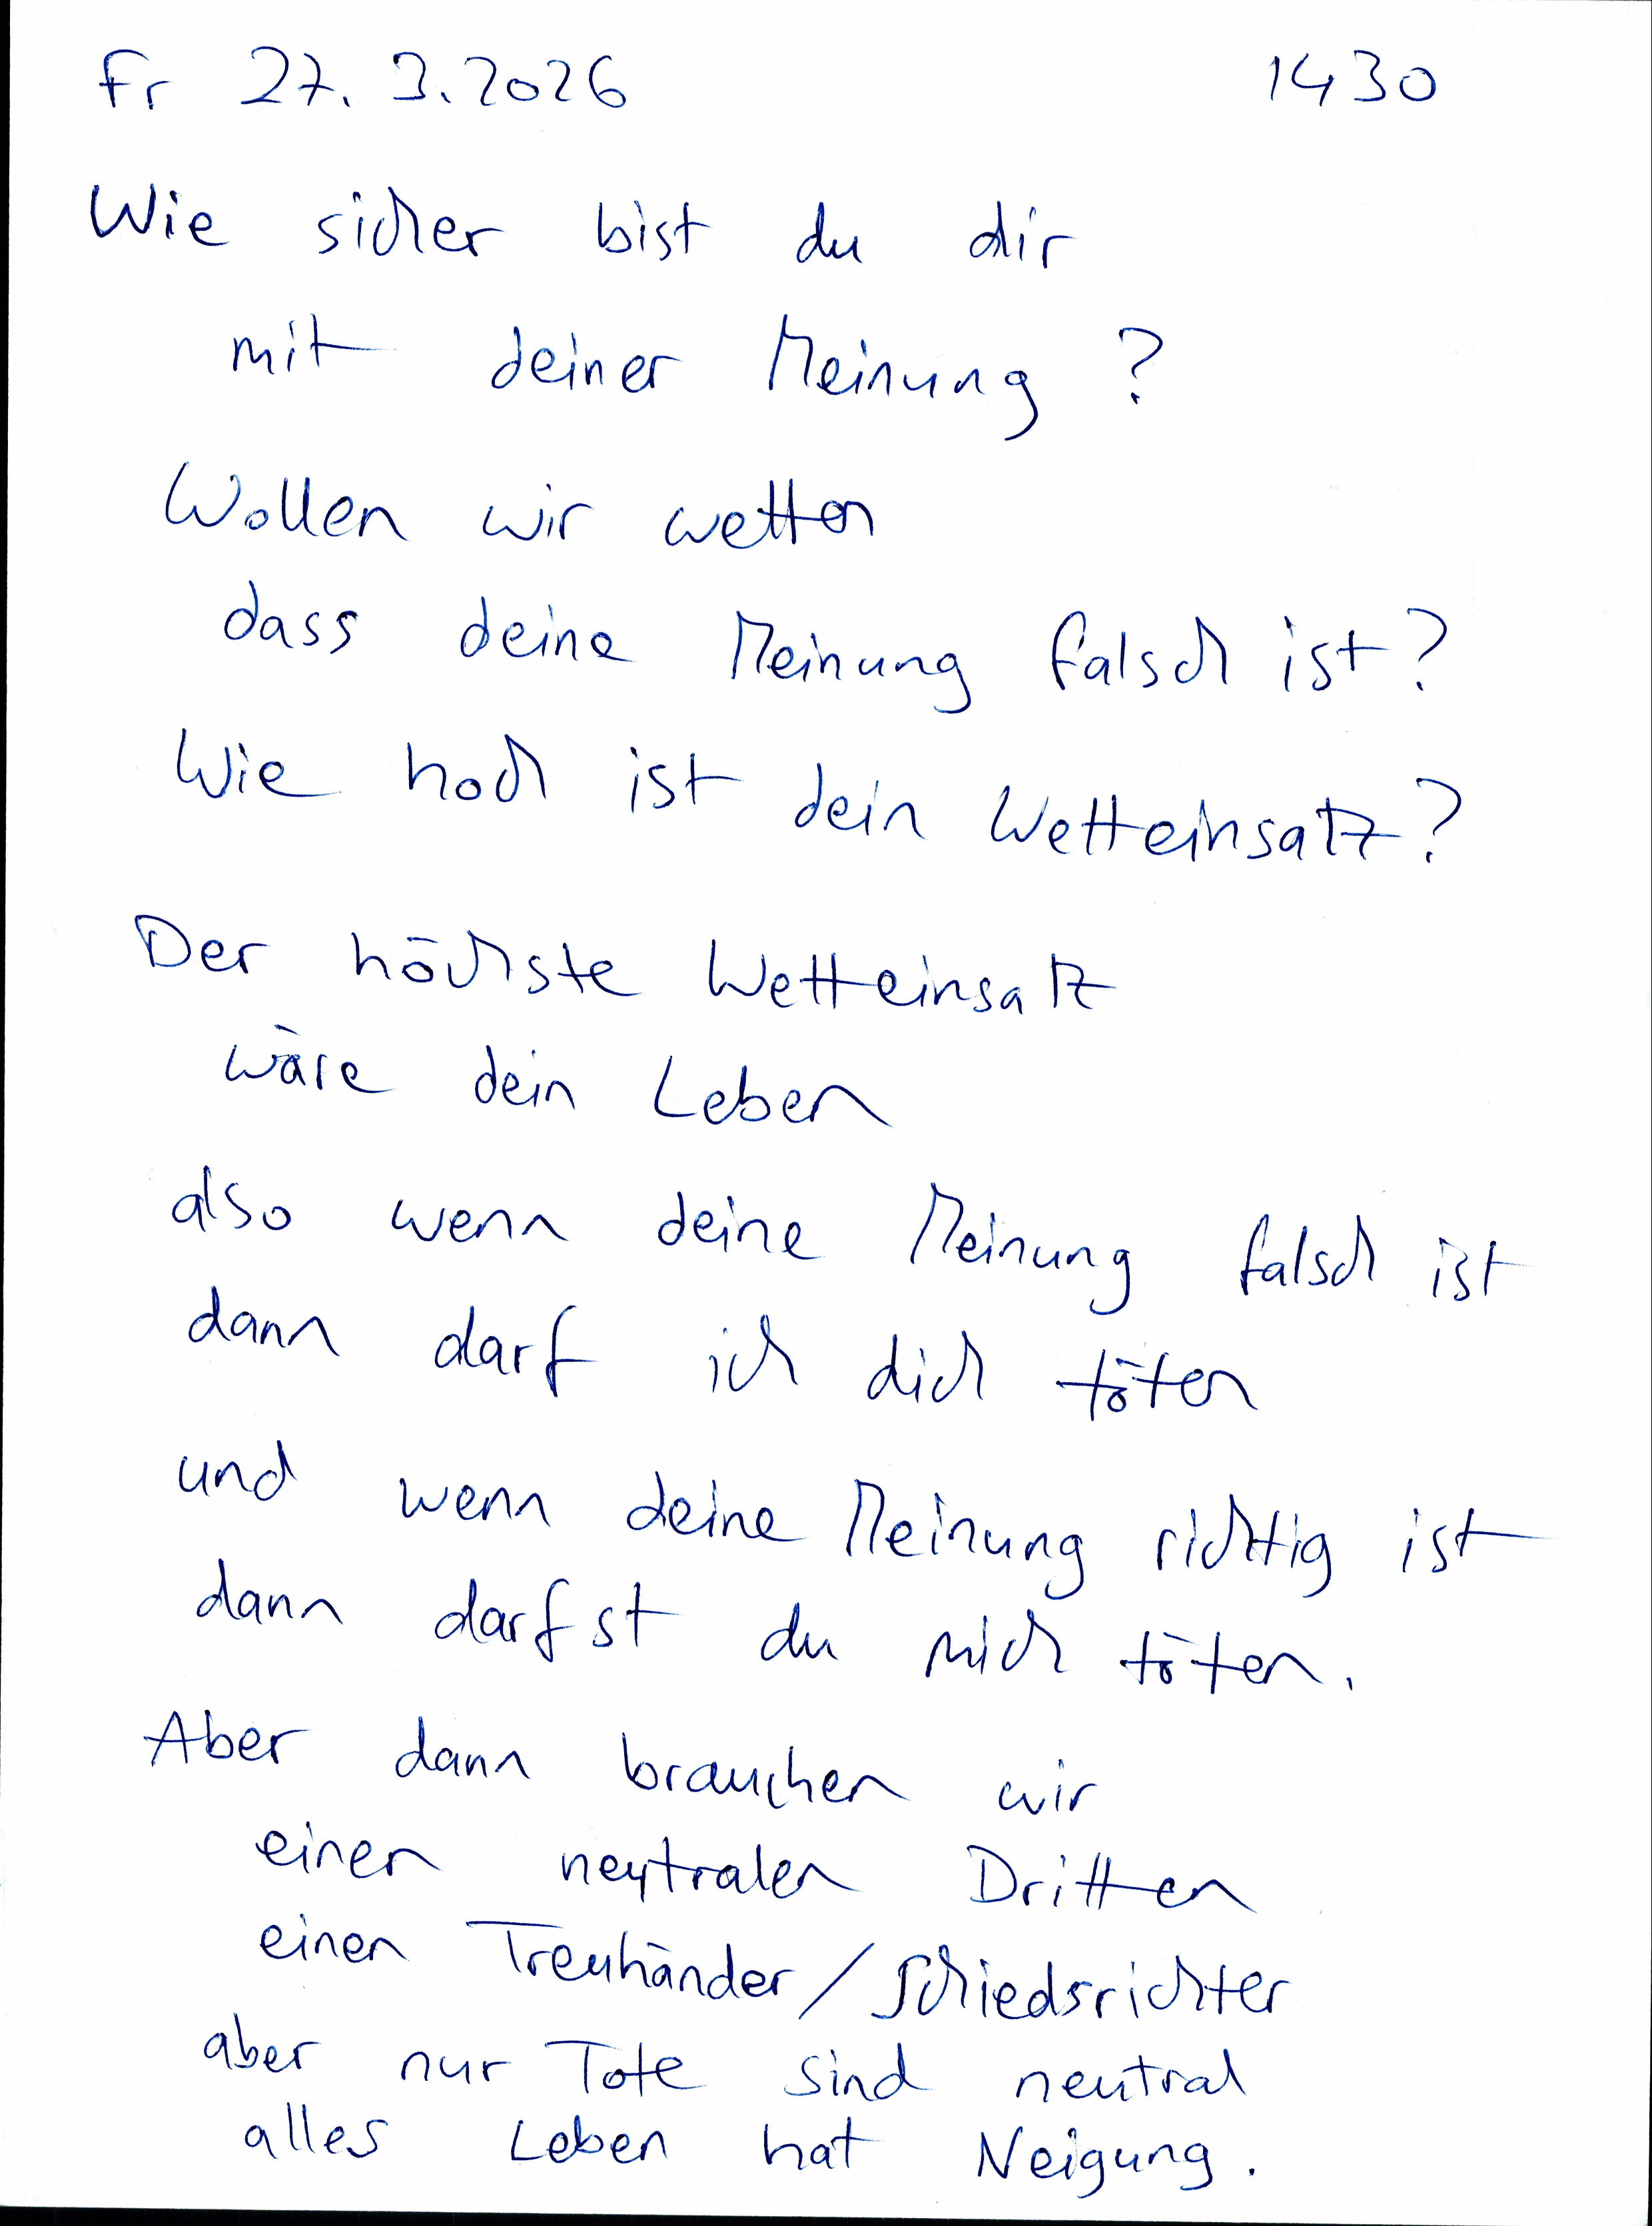 Fr 27. 3. 2026 1430
Wie sicher bist du dir
mit deiner Meinung ?
Wollen wir wetten
dass deine Meinung falsch ist?
Wie hoch ist dein Wetteinsatz?
Der höchste Wetteinsatz
wäre dein Leben
also wenn deine Meinung falsch ist
dann darf ich dich töten
und wenn deine Meinung richtig ist
dann darfst du mich töten.
Aber dann brauchen wir
einen neutralen Dritten
einen Treuhänder / Schiedsrichter
aber nur Tote sind neutral
alles Leben hat Neigung.